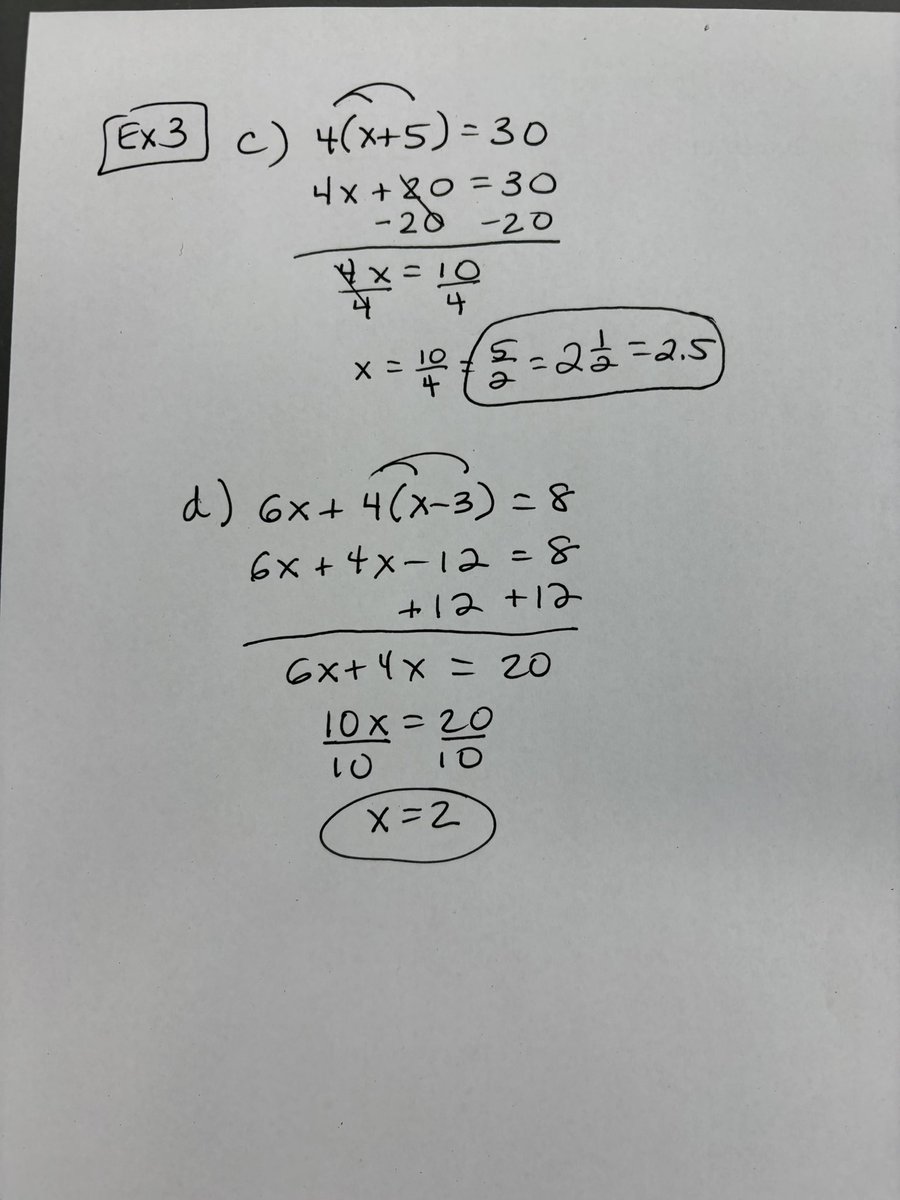 Ex.3 c) 4(x+5) = 30
4x + 20 = 30
-20 -20
4x/4 = 10/4
x = 10/4 = 5/2 = 2 1/2 = 2.5
d) 6x + 4(x-3) = 8
6x + 4x - 12 = 8
+12 +12
6x + 4x = 20
10x/10 = 20/10
x = 2